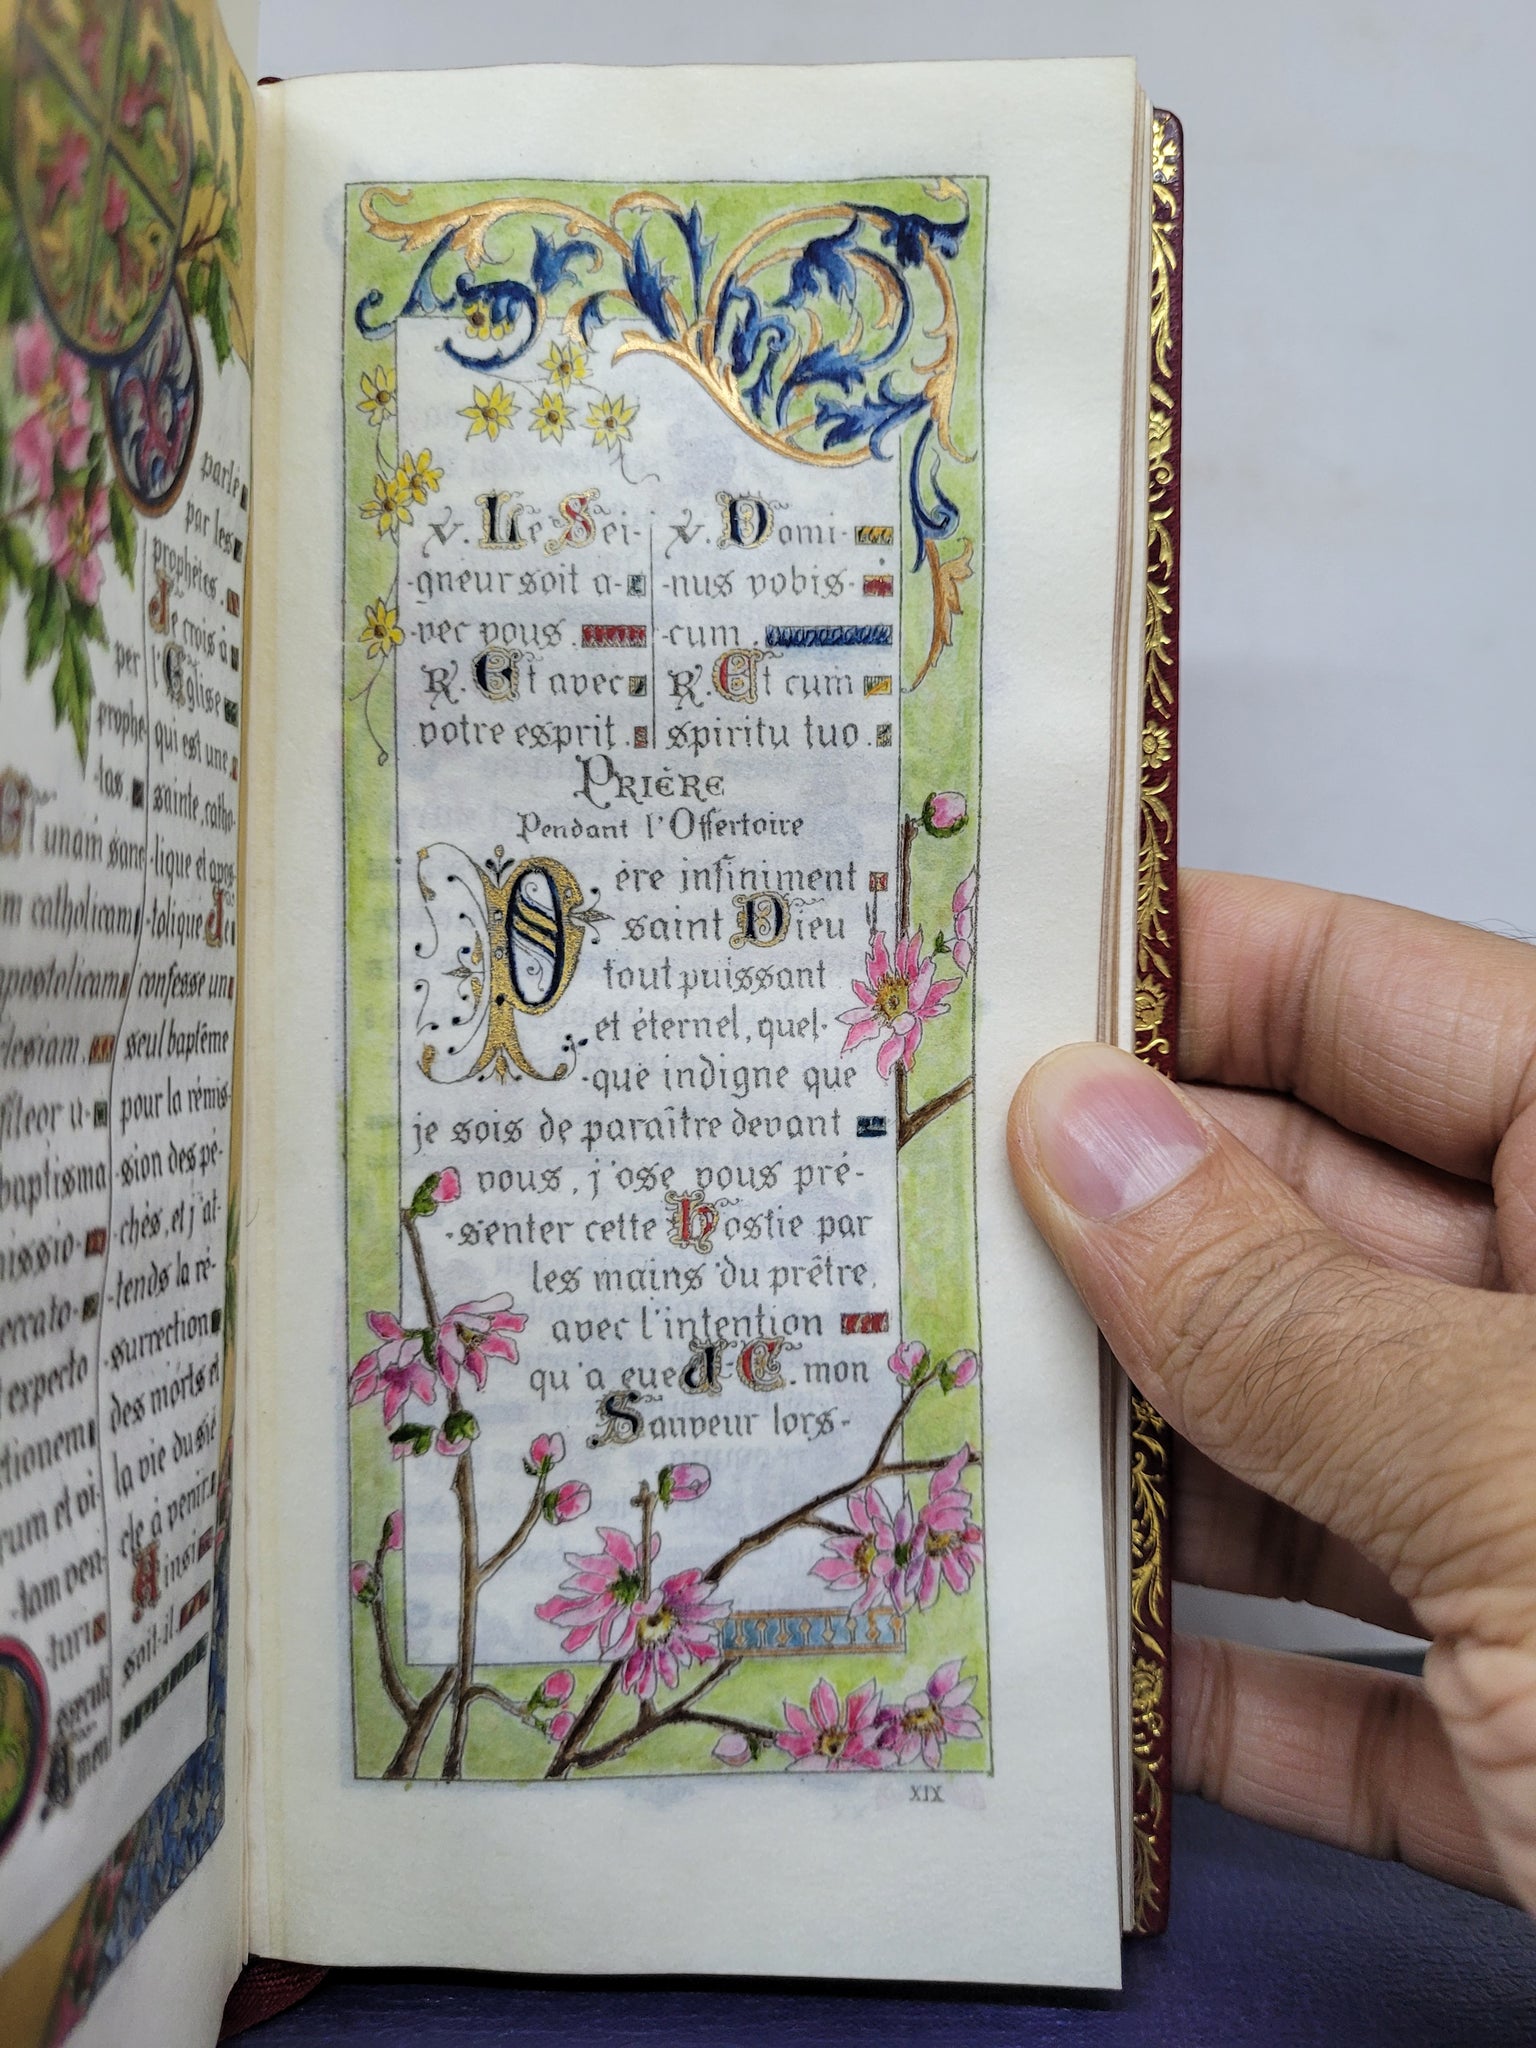 parlé
par les
prophètes.
Je crois à
l'Eglise
qui est une
sainte, catho-
-lique et apos-
-tolique Je
confesse un
seul baptême
pour la rémis-
-sion des pé-
-chés, et j'at-
-tends la ré-
-surrection
des morts et
la vie du siè
cle à venir.
Ainsi
soit-il.
per
prophe-
-tas.
Et unam sanc
am catholicam
apostolicam
clesiam.
fiteor u-
baptisma
missio-
eccato-
t experto
ctionem
rum et vi-
-tam ven-
-turi
sæculi
Amen
V. Le Sei-
-gneur soit a-
-vec vous.
R. Et avec
votre esprit.
V. Domi-
-nus vobis-
-cum.
R. Et cum
spiritu tuo.
PRIÈRE
Pendant l'Offertoire
Père infiniment
saint Dieu
tout puissant
et éternel, quel-
-que indigne que
je sois de paraître devant
vous, j'ose vous pré-
-senter cette Hostie par
les mains du prêtre,
avec l'intention
qu'a eue J-C. mon
Sauveur lors-
XIX